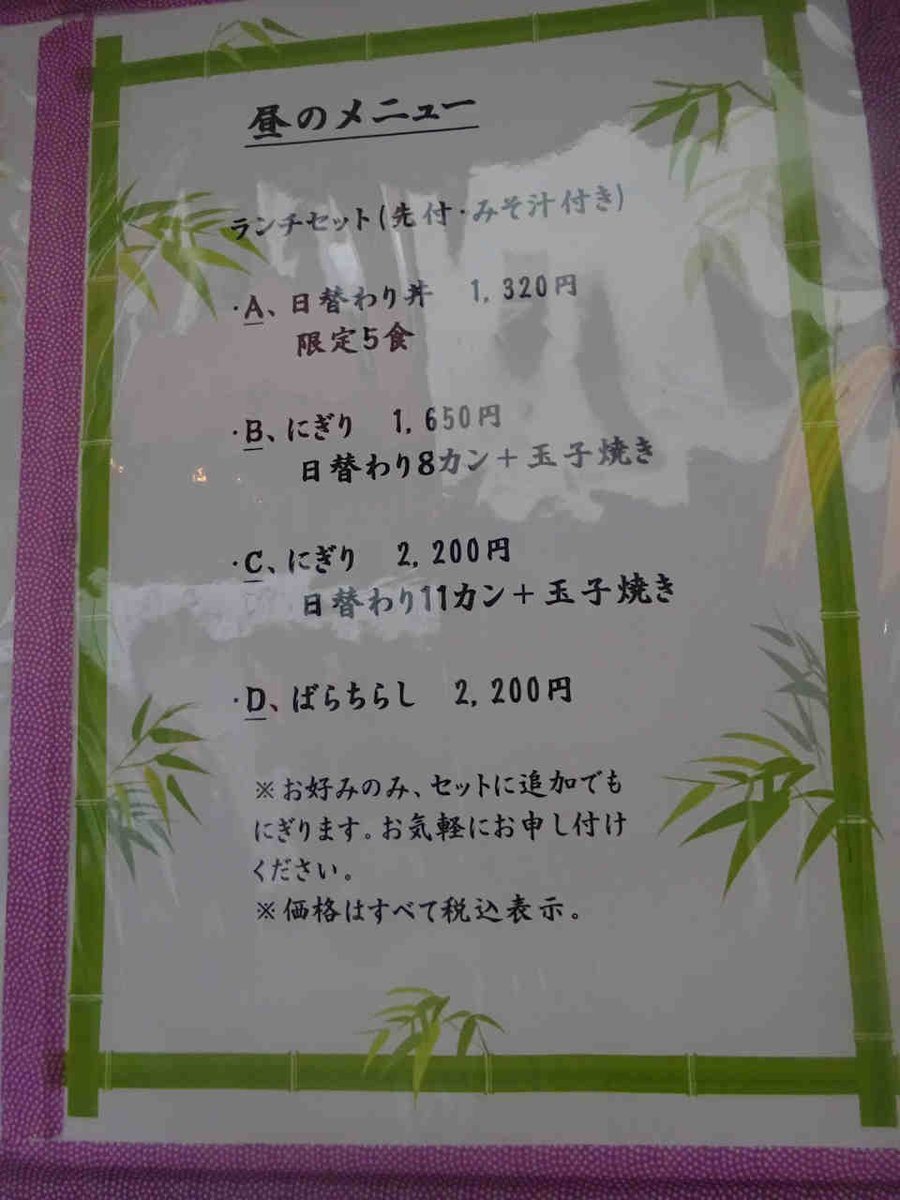 昼のメニュー
ランチセット(先付・みそ汁付き)
・A、日替わり丼 1,320円
限定5食
・B、にぎり 1,650円
日替わり8カン+玉子焼き
・C、にぎり 2,200円
日替わり11カン+玉子焼き
・D、ばらちらし 2,200円
※お好みのみ、セットに追加でも
にぎります。お気軽にお申し付け
ください。
※価格はすべて税込表示。